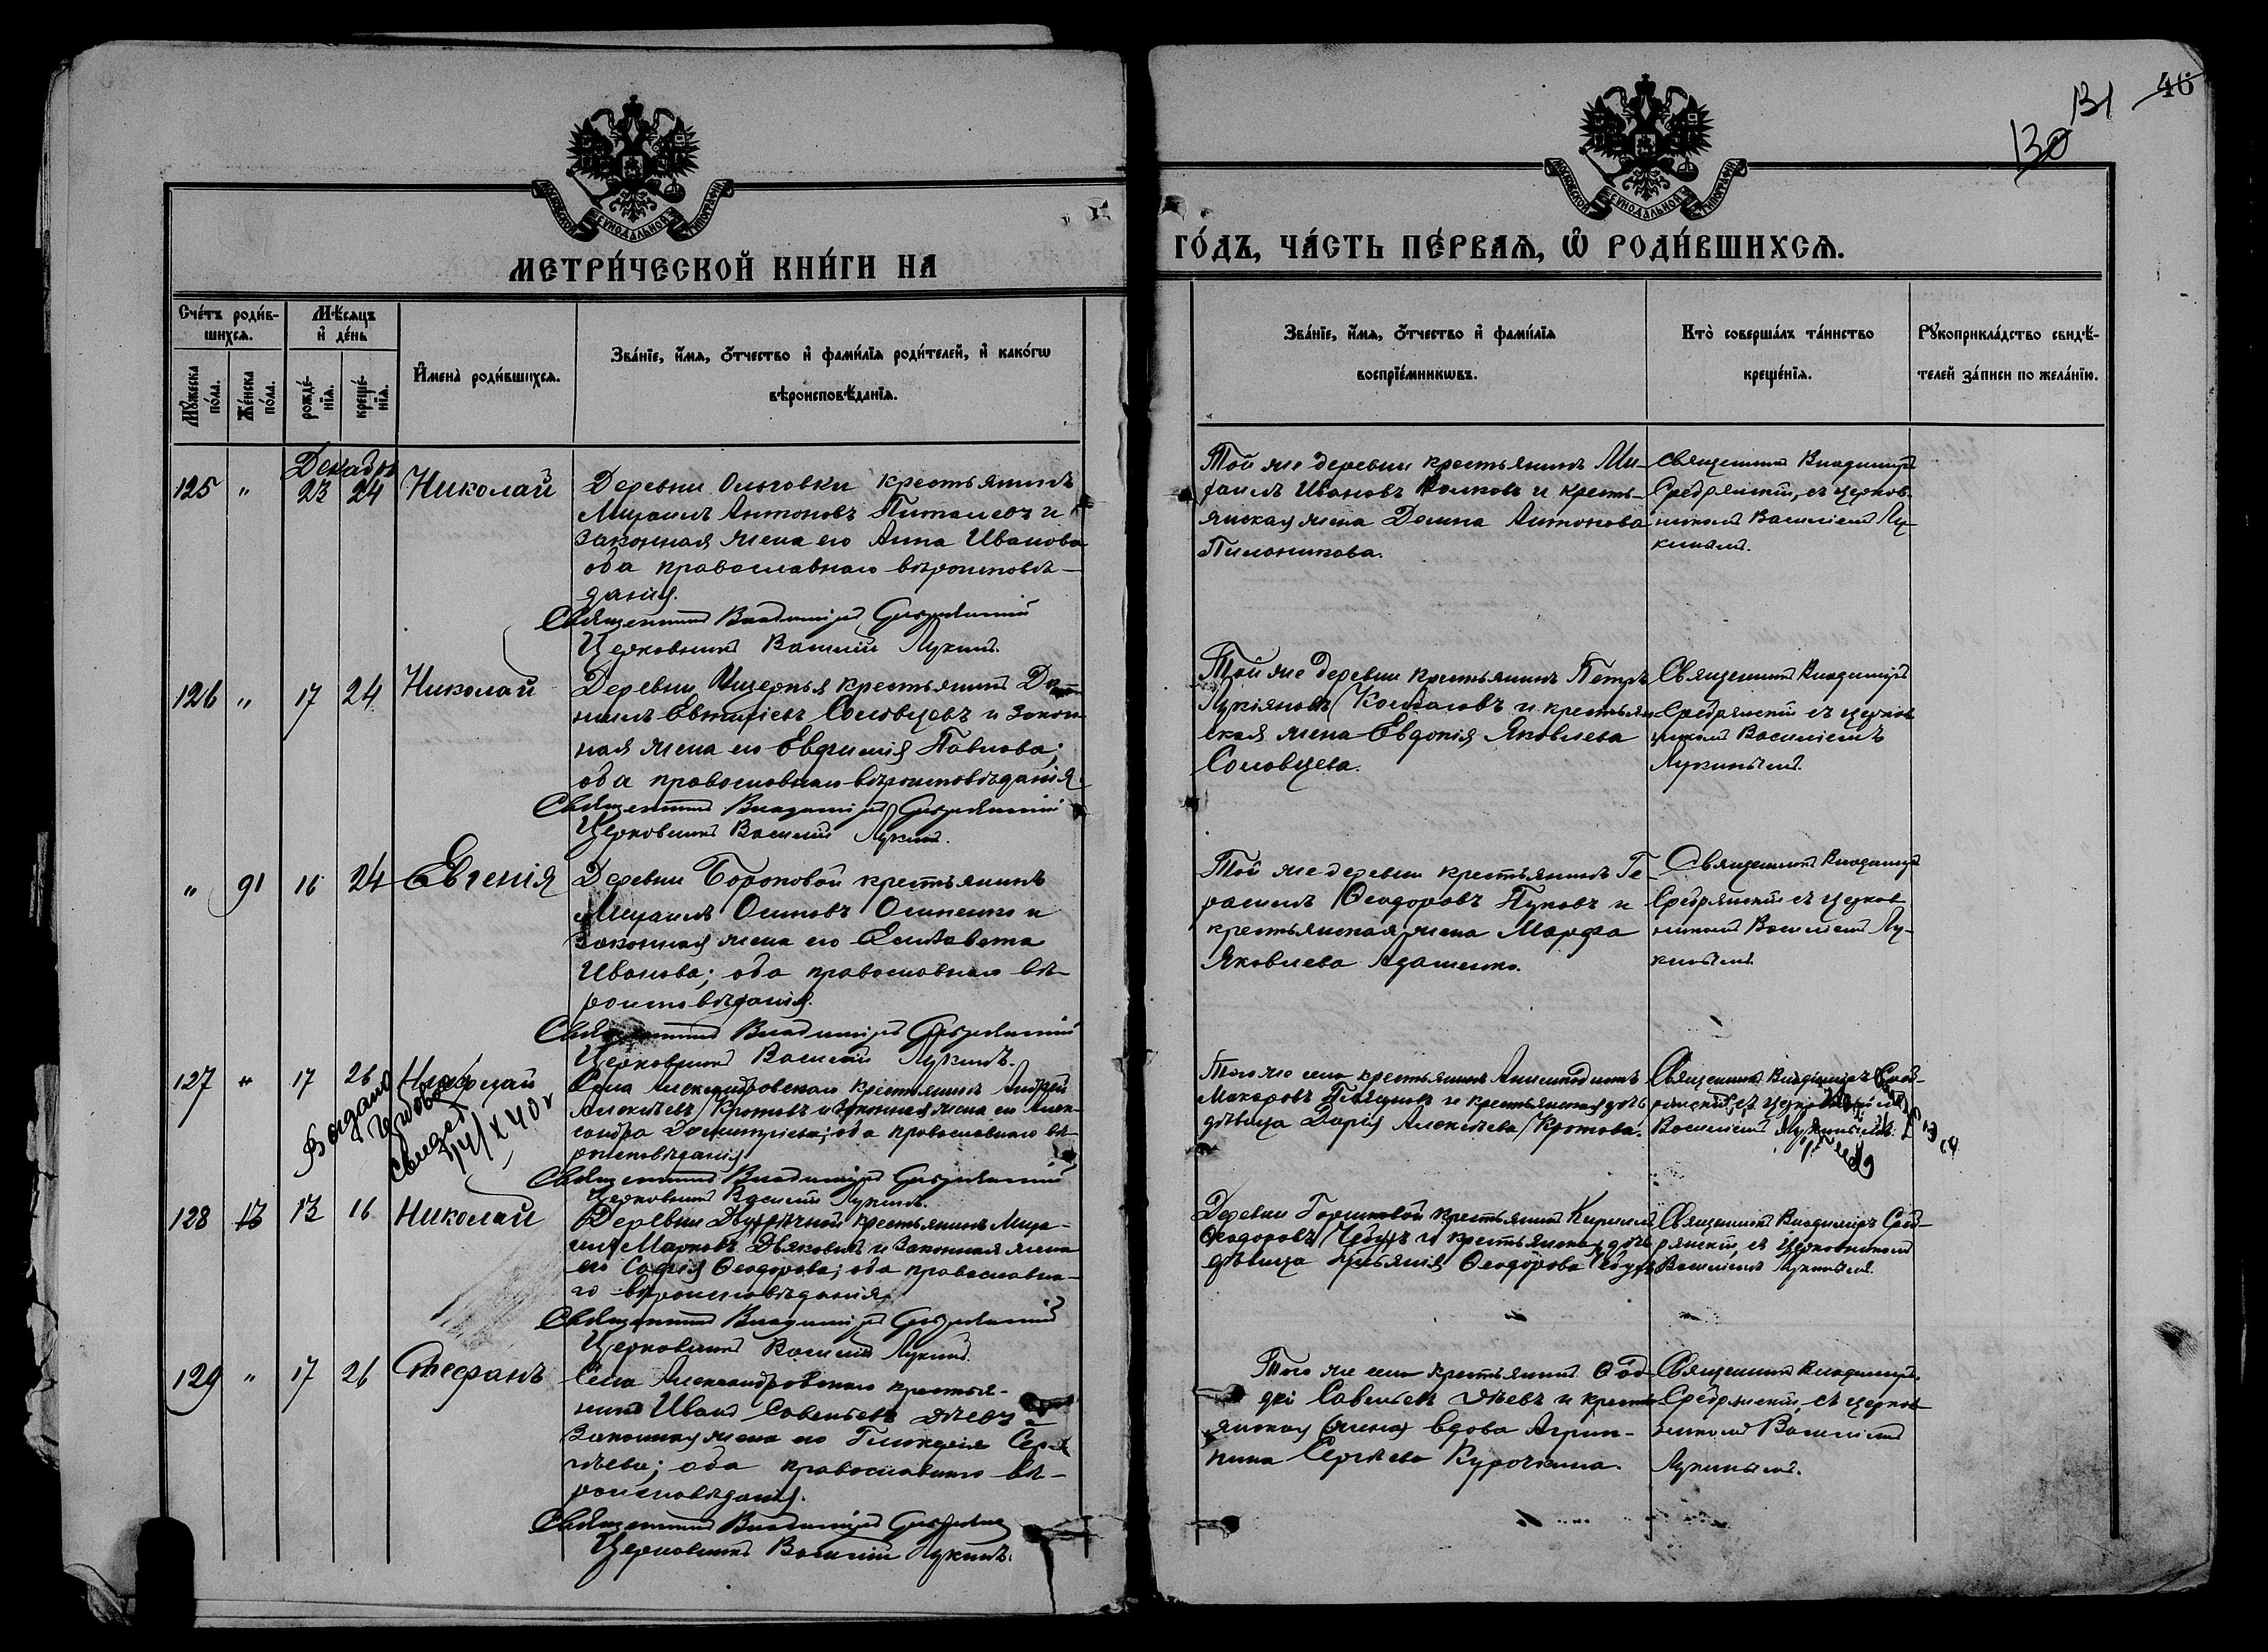 46
131
130
МОСКОВСКОЙ СѴНОДАЛЬНОЙ ТИПОГРАФІИ
МОСКОВСКОЙ СѴНОДАЛЬНОЙ ТИПОГРАФІИ
МЕТРИ́ЧЕСКОЙ КНИ́ГИ НА
ГО́ДЪ, ЧА́СТЬ ПЕ́РВАѦ, Ѡ҆ РОДИ́ВШИХСѦ.
Счéтъ роди́в-
шихсѧ.
Мꙋ́жеска по́ла.
Же́нска по́ла.
Мѣ́сѧцъ
и҆ де́нь
рожде́-
нїѧ.
креще́-
нїѧ.
И҆мена̀ роди́вшихсѧ.
Зва́нїе, и҆́мѧ, ѻ҆́тчество и҆ фами́лїѧ роди́телей, и҆ како́гѡ
вѣроисповѣ́данїѧ.
Зва́нїе, и҆́мѧ, ѻ҆́тчество и҆ фами́лїѧ
воспрїе́мникѡвъ.
Кто̀ соверша́лъ та́инство
креще́нїѧ.
Рꙋкоприкла́дство свидѣ́-
телей за́писи по жела́нїю.
Декабрь
125 " 23 24 Николай
Деревни Ольговки крестьянинъ
Михаилъ Антоновъ и
законная жена его Анна Иванова
оба православнаго вѣроисповѣ-
данія.
Священникъ Владиміръ Сребрянскій
Церковникъ Василій Лукинъ.
Той же деревни крестьянинъ Ми-
хаилъ Ивановъ Волковъ и кресть-
янская жена Домна Антонова
Пильникова.
Священникъ Владиміръ
Сребрянскій, съ церков-
никомъ Василіемъ Лу-
кинымъ.
126 " 17 24 Николай
Деревни крестьянинъ Да-
ніилъ Соловцевъ и закон-
ная жена его Евфимія Павлова;
оба православнаго вѣроисповѣданія
Священникъ Владиміръ Сребрянскій
Церковникъ Василій Лукинъ.
Той же деревни крестьянинъ Петръ
Лукіановъ и крестьян-
ская жена Евдокія Яковлева
Соловцева.
Священникъ Владиміръ
Сребрянскій съ церков-
никомъ Василіемъ
Лукинымъ.
" 91 16 24 Евгенія
Деревни Боровковой крестьянинъ
Михаилъ Осиповъ Осипенко и
законная жена его Елизавета
Иванова; оба православнаго вѣ-
роисповѣданія.
Священникъ Владиміръ Сребрянскій
Церковникъ Василій Лукинъ.
Той же деревни крестьянинъ Ге-
расимъ Ѳеодоровъ Пуковъ и
крестьянская жена Марфа
Яковлева Адаменко.
Священникъ Владиміръ
Сребрянскій съ церков-
никомъ Василіемъ Лу-
кинымъ.
127 " 17 26 Николай
Села Александровскаго крестьянинъ Андрей
Алексѣевъ Кротовъ и законная жена его Алек-
сандра Димитріева; оба православнаго вѣ-
роисповѣданія
Священникъ Владиміръ Сребрянскій
Церковникъ Василій Лукинъ.
Того же села крестьянинъ
Макаровъ и крестьянская дочь
дѣвица Дарія Алексѣева Кротова.
Священникъ Владиміръ Среб-
рянскій, съ церковникомъ
Василіемъ Лукинымъ.
Выдано
14/X 40 г
128 13 16 Николай
Деревни Двухрѣчной крестьянинъ Миха-
илъ Марковъ Дьяковъ и законная жена
его Софія Ѳеодорова; оба православна-
го вѣроисповѣданія.
Священникъ Владиміръ Сребрянскій
Церковникъ Василій Лукинъ.
Деревни крестьянинъ Кириллъ
Ѳеодоровъ и крестьянская дочь
дѣвица Ульянія Ѳеодорова
Священникъ Владиміръ Среб-
рянскій, съ церковникомъ
Василіемъ Лукинымъ.
129 " 17 26 Стефанъ
Села Александровскаго крестья-
нинъ Иванъ Савельевъ и
законная жена его Гликерія Сер-
гѣева; оба православнаго вѣ-
роисповѣданія.
Священникъ Владиміръ Сребрянскій
Церковникъ Василій Лукинъ.
Того же села крестьянинъ
Савельевъ и кресть-
янская жена вдова Агрип-
пина Сергѣева Курочкина.
Священникъ Владиміръ
Сребрянскій, съ церков-
никомъ Василіемъ
Лукинымъ.